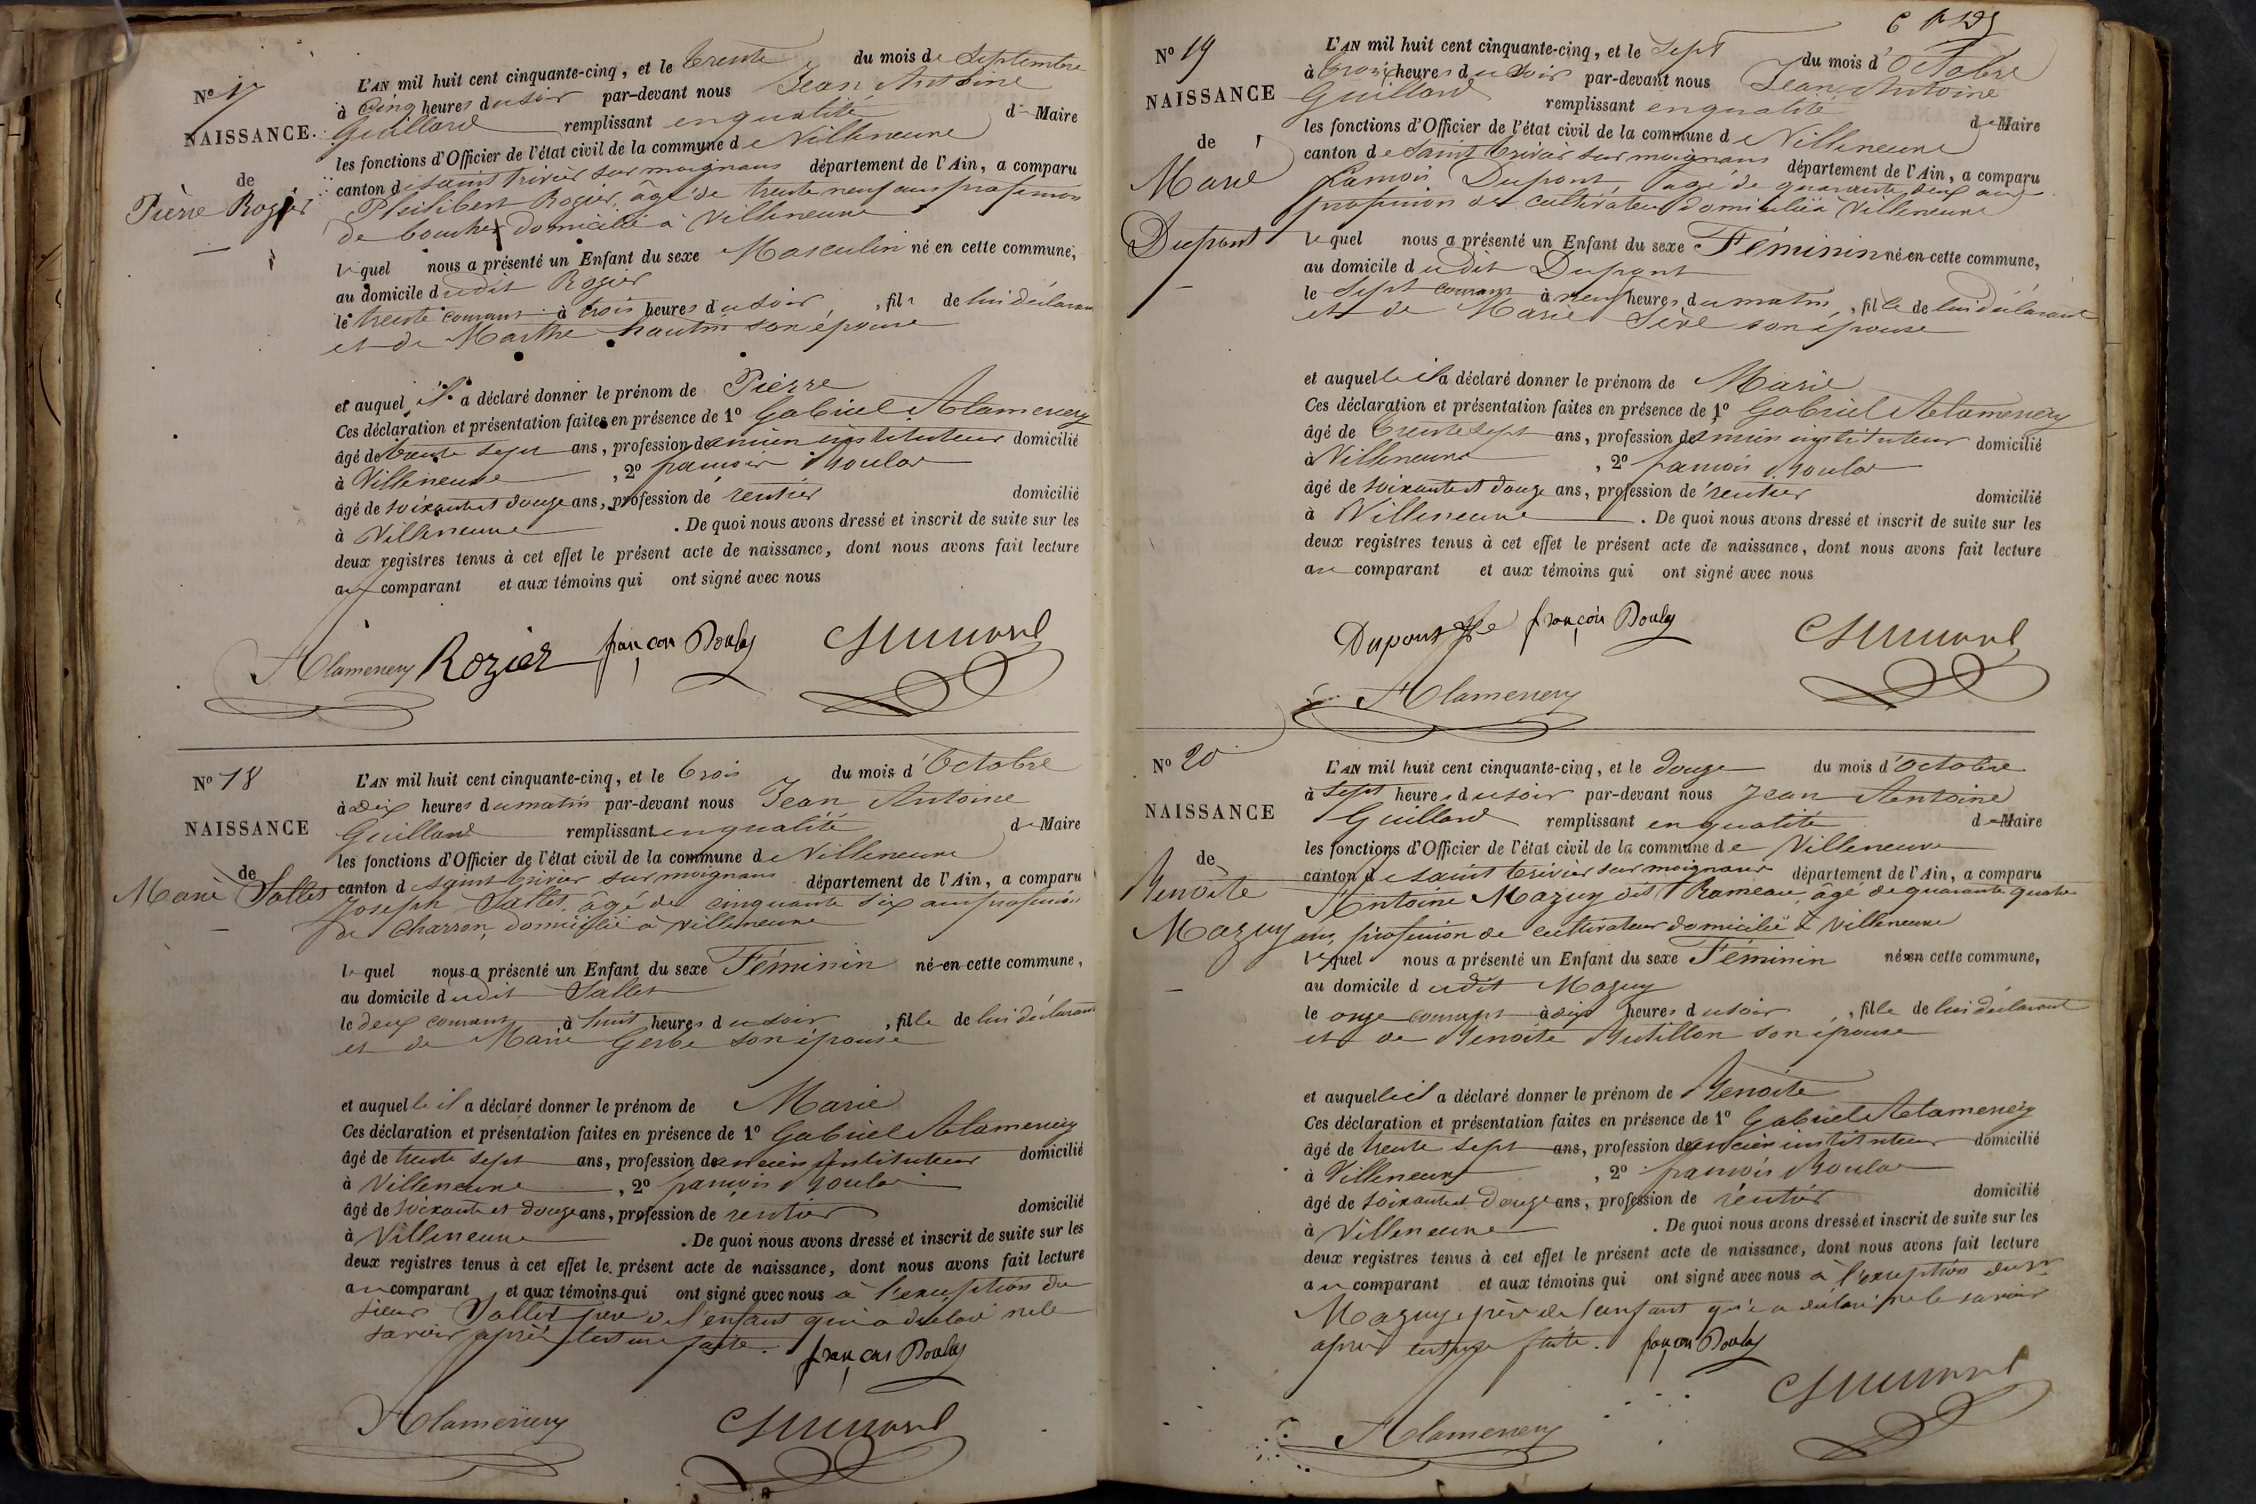 N° 17
NAISSANCE.
de
Pièrre Rogier
L'AN mil huit cent cinquante-cinq, et le trente du mois de Septembre
à cinq heures du soir par-devant nous Jean Antoine
Guillard remplissant en qualité de Maire
les fonctions d'Officier de l'état civil de la commune de Villeneuve
canton de saint trivier sur moignans département de l'Ain, a comparu
Philibert Rogier, âgé de trente neuf ans profession
de boucher domicilié à Villeneuve
lequel nous a présenté un Enfant du sexe Masculin né en cette commune,
au domicile dudit Rogier
le trente courant à trois heures du soir, fils de lui déclarant
et de Marthe son épouse
et auquel il a déclaré donner le prénom de Pièrre
Ces déclaration et présentation faites en présence de 1° Gabriel Alamercery
âgé de trente sept ans, profession de ancien instituteur domicilié
à Villeneuve, 2° françois Boulas
âgé de soixante et douze ans, profession de rentier domicilié
à Villeneuve. De quoi nous avons dressé et inscrit de suite sur les
deux registres tenus à cet effet le présent acte de naissance, dont nous avons fait lecture
au comparant et aux témoins qui ont signé avec nous
Alamercery Rozier françois Boulas Guillard
N° 18
NAISSANCE
de
Marie Sallet
L'AN mil huit cent cinquante-cinq, et le trois du mois d'Octobre
à dix heures du matin par-devant nous Jean Antoine
Guillard remplissant en qualité de Maire
les fonctions d'Officier de l'état civil de la commune de Villeneuve
canton de saint trivier sur moignans département de l'Ain, a comparu
Joseph Sallet, âgé de cinquante six ans profession
de Charron, domicilié à Villeneuve
lequel nous a présenté un Enfant du sexe Féminin né en cette commune,
au domicile dudit Sallet
le deux courant à huit heures du soir, fille de lui déclarant
et de Marie Gerbe son épouse
et auquelle il a déclaré donner le prénom de Marie
Ces déclaration et présentation faites en présence de 1° Gabriel Alamercery
âgé de trente sept ans, profession de ancien instituteur domicilié
à Villeneuve, 2° françois Boulas
âgé de soixante et douze ans, profession de rentier domicilié
à Villeneuve. De quoi nous avons dressé et inscrit de suite sur les
deux registres tenus à cet effet le présent acte de naissance, dont nous avons fait lecture
au comparant et aux témoins qui ont signé avec nous à l'exception du
sieur Sallet père de l'enfant qui a déclaré ne le
savoir après lecture faite. françois Boulas
Alamercery Guillard
N° 19
NAISSANCE
de
Marie
Dupont
L'AN mil huit cent cinquante-cinq, et le sept du mois d'Octobre
à trois heures du soir par-devant nous Jean Antoine
Guillard remplissant en qualité de Maire
les fonctions d'Officier de l'état civil de la commune de Villeneuve
canton de saint trivier sur moignans département de l'Ain, a comparu
françois Dupont âgé de quarante deux ans
profession de cultivateur domicilié à Villeneuve
lequel nous a présenté un Enfant du sexe Féminin né en cette commune,
au domicile dudit Dupont
le sept courant à neuf heures du matin, fille de lui déclarant
et de Marie son épouse
et auquelle il a déclaré donner le prénom de Marie
Ces déclaration et présentation faites en présence de 1° Gabriel Alamercery
âgé de trente sept ans, profession de ancien instituteur domicilié
à Villeneuve, 2° françois Boulas
âgé de soixante et douze ans, profession de rentier domicilié
à Villeneuve. De quoi nous avons dressé et inscrit de suite sur les
deux registres tenus à cet effet le présent acte de naissance, dont nous avons fait lecture
au comparant et aux témoins qui ont signé avec nous
Dupont françois Boulas Guillard
Alamercery
N° 20
NAISSANCE
de
Benoite
Mazuy
L'AN mil huit cent cinquante-cinq, et le douze du mois d'Octobre
à sept heures du soir par-devant nous Jean Antoine
Guillard remplissant en qualité de Maire
les fonctions d'Officier de l'état civil de la commune de Villeneuve
canton de saint trivier sur moignans département de l'Ain, a comparu
Antoine Mazuy dit Rameau, âgé de quarante quatre
ans, profession de cultivateur domicilié à Villeneuve
lequel nous a présenté un Enfant du sexe Féminin né en cette commune,
au domicile dudit Mazuy
le onze courant à dix heures du soir, fille de lui déclarant
et de Benoite Butillon son épouse
et auquelle il a déclaré donner le prénom de Benoite
Ces déclaration et présentation faites en présence de 1° Gabriel Alamercery
âgé de trente sept ans, profession de ancien instituteur domicilié
à Villeneuve, 2° françois Boulas
âgé de soixante et douze ans, profession de rentier domicilié
à Villeneuve. De quoi nous avons dressé et inscrit de suite sur les
deux registres tenus à cet effet le présent acte de naissance, dont nous avons fait lecture
au comparant et aux témoins qui ont signé avec nous à l'exception du sr
Mazuy, père de l'enfant qui a déclaré ne le savoir
après lecture faite. françois Boulas
Guillard
Alamercery